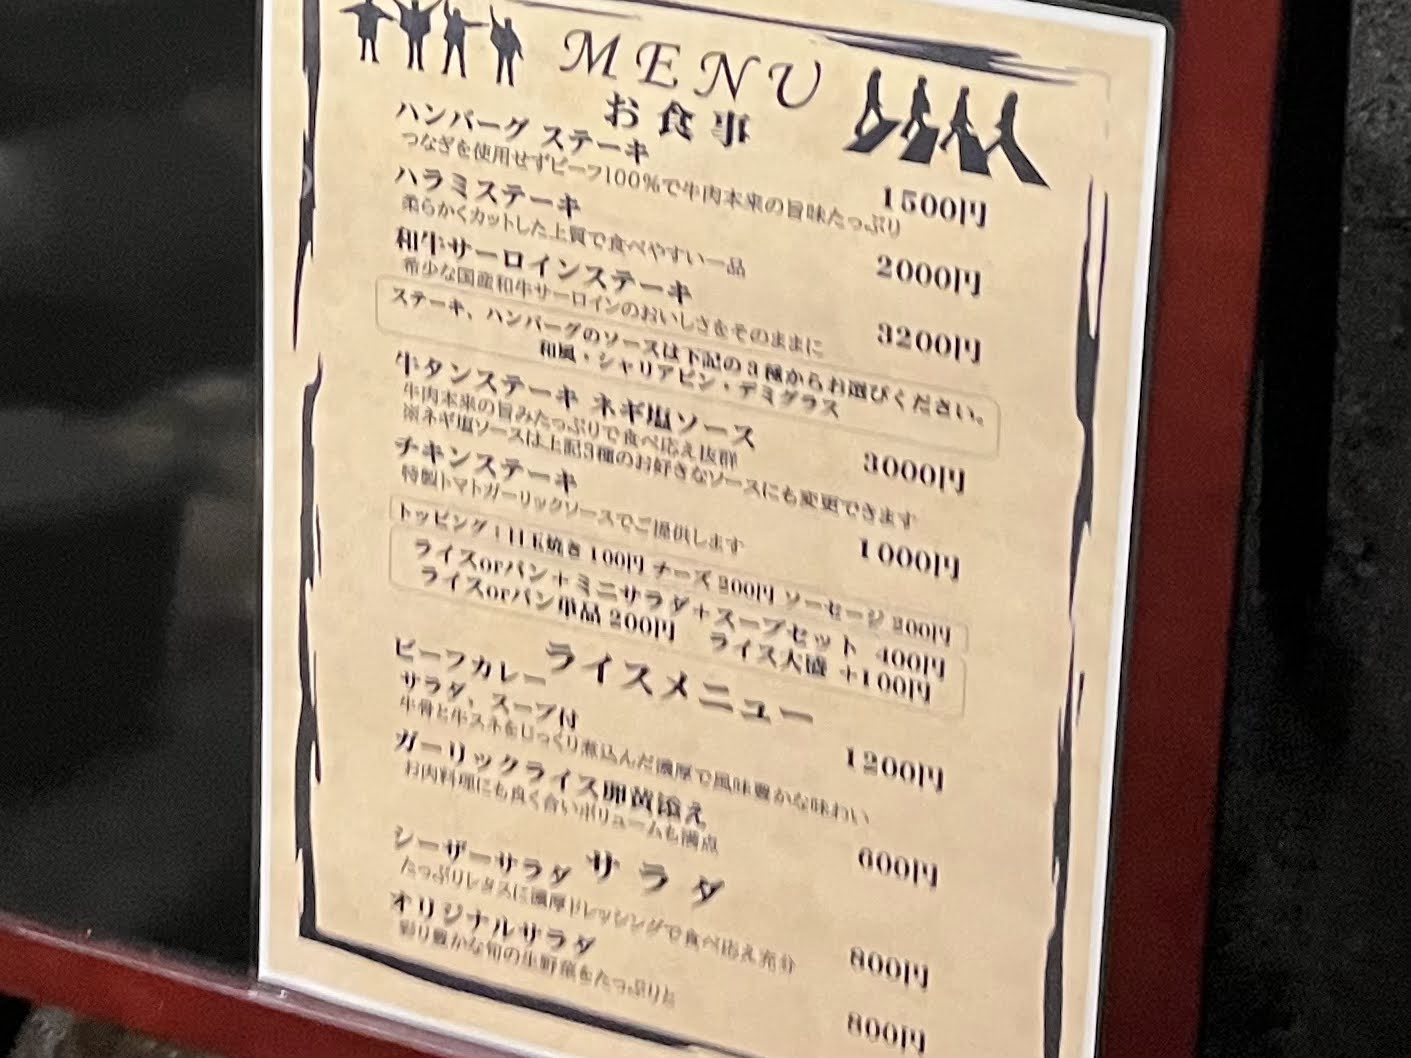 MENU
お食事
ハンバーグ ステーキ
つなぎを使用せずビーフ100%で牛肉本来の旨味たっぷり
1500円
ハラミステーキ
柔らかくカットした上質で食べやすい一品
2000円
和牛サーロインステーキ
希少な国産和牛サーロインのおいしさをそのままに
3200円
ステーキ、ハンバーグのソースは下記の3種からお選びください。
和風・シャリアピン・デミグラス
牛タンステーキ ネギ塩ソース
牛肉本来の旨みたっぷりで食べ応え抜群
※ネギ塩ソースは上記3種のお好きなソースにも変更できます
3000円
チキンステーキ
特製トマトガーリックソースでご提供します
1000円
トッピング:目玉焼き 100円 チーズ 200円 ソーセージ 200円
ライスorパン+ミニサラダ+スープセット 400円
ライスorパン単品 200円 ライス大盛 +100円
ライスメニュー
ビーフカレー
サラダ、スープ付
牛骨と牛スネをじっくり煮込んだ濃厚で風味豊かな味わい
1200円
ガーリックライス卵黄添え
お肉料理にも良く合いボリュームも満点
600円
サラダ
シーザーサラダ
たっぷりレタスに濃厚ドレッシングで食べ応え充分
800円
オリジナルサラダ
彩り豊かな旬の生野菜をたっぷりと
800円